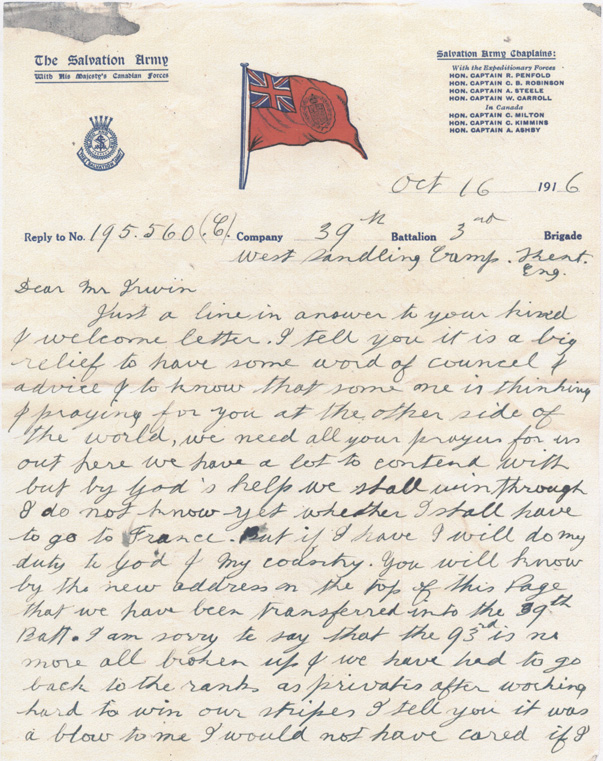 The Salvation Army
With His Majesty's Canadian Forces
Salvation Army Chaplains:
With the Expeditionary Forces
HON. CAPTAIN R. PENFOLD
HON. CAPTAIN C. B. ROBINSON
HON. CAPTAIN A. STEELE
HON. CAPTAIN W. CARROLL
In Canada
HON. CAPTAIN C. MILTON
HON. CAPTAIN C. KIMMINS
HON. CAPTAIN A. ASHBY
Oct 16 1916
Reply to No. 195.560 (C). Company 39th Battalion 3rd Brigade
West Sandling Camp. Kent.
Eng.
Dear Mr Irwin
Just a line in answer to your kind
& welcome letter. I tell you it is a big
relief to have some word of councel &
advice & to know that some one is thinking
& praying for you at the other side of
the world, we need all your prayers for us
out here we have a lot to contend with
but by God's help we shall win through
I do not know yet whether I shall have
to go to France. But if I have I will do my
duty to God & my country. You will know
by the new address on the top of this Page
that we have been transferred into the 39th
Batt. I am sorry to say that the 93rd is no
more all broken up & we have had to go
back to the ranks as privates after working
hard to win our stripes I tell you it was
a blow to me I would not have cared if I